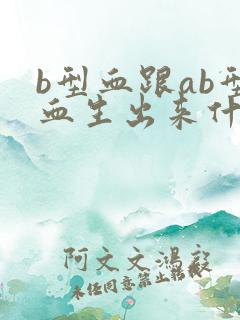 b型血跟ab型
血生出来什
阿文文鸿毅
未经同意禁止转载